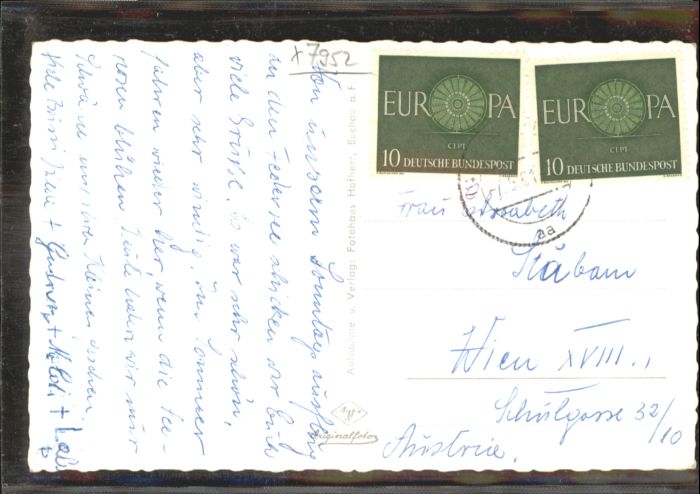 x7952
Von unserem Sonntagsausflug
an den Federsee schicken wir Euch
viele Grüße. Es war sehr schön,
aber sehr windig. Im Sommer
fahren wieder her, wenn die See-
rosen blühen. Heute haben wir nur
Schwäne mit ihren Kleinen gesehen.
Viele + Gudrun +
Aufnahme u. Verlag: Fotohaus Hofherr, Buchau a. F.
Originalfoto
EUROPA
CEPT
10 DEUTSCHE BUNDESPOST
EUROPA
CEPT
10 DEUTSCHE BUNDESPOST
aa
Frau Elisabeth
Wien XVIII.,
Schulgasse 32/10
Austria.